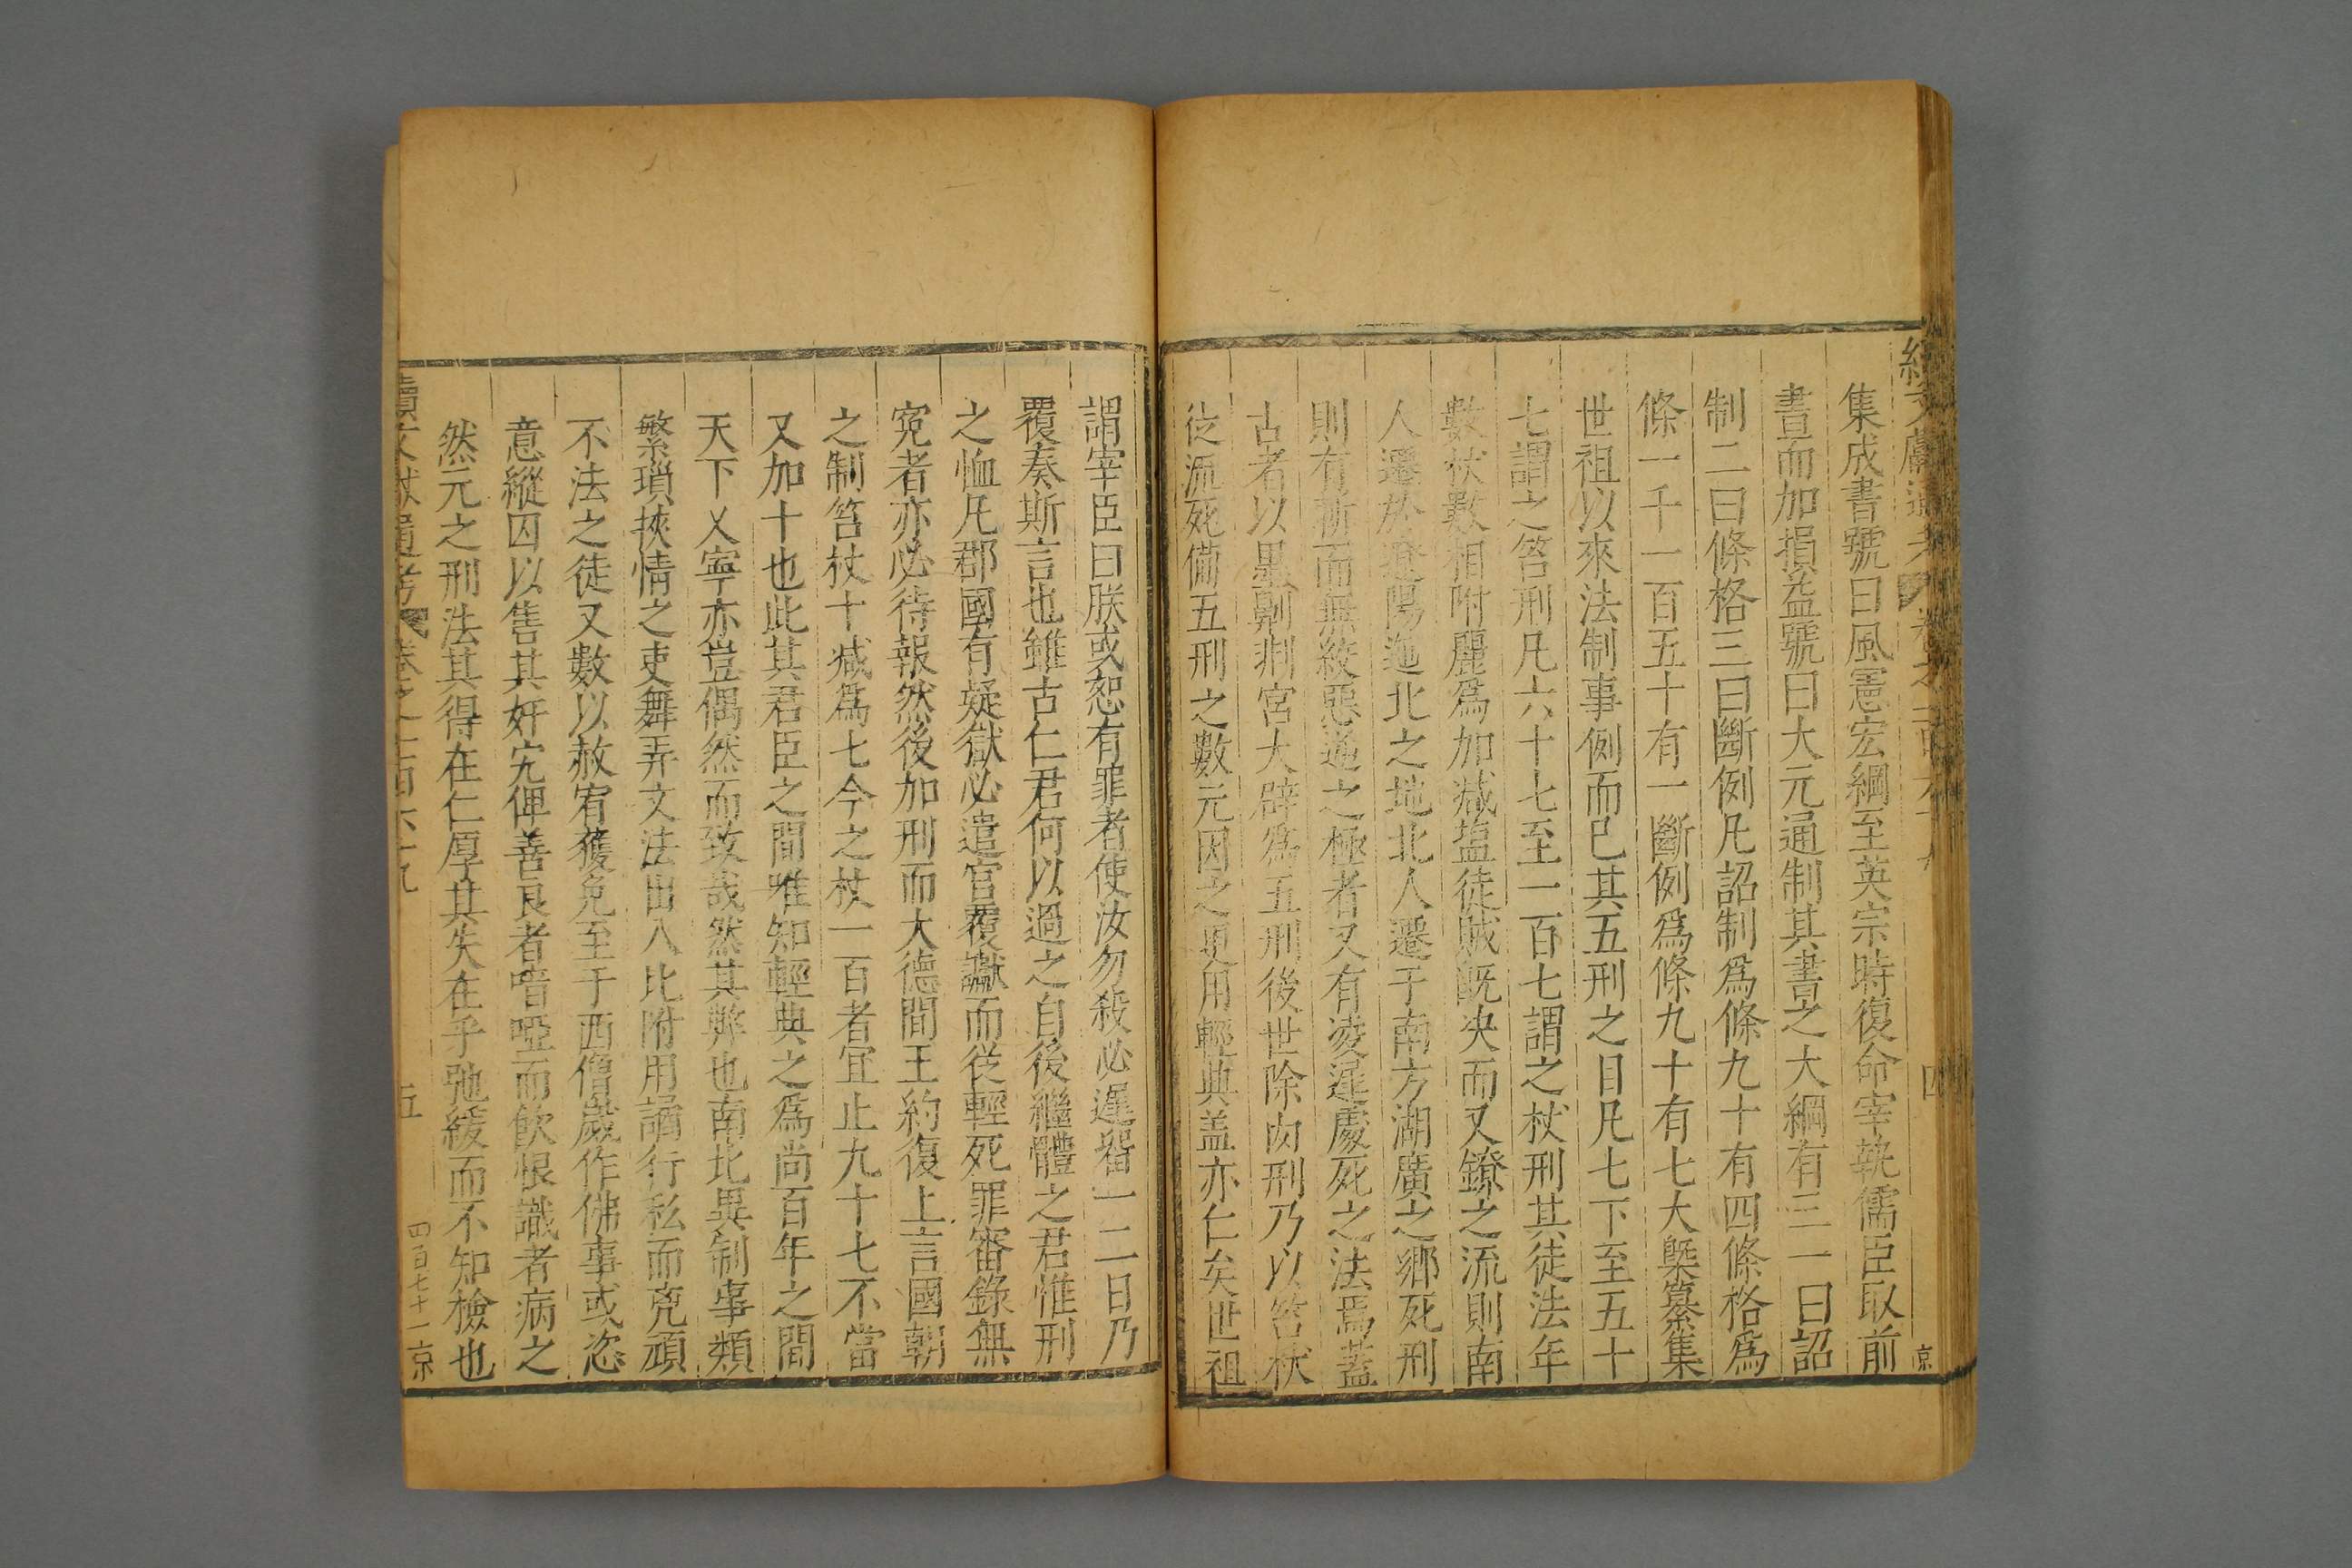 集成書號曰風憲宏綱至英宗時復命宰執儒臣取前
書而加損益號曰大元通制其書之大綱有三一曰詔
制二曰條格三曰斷例凡詔制爲條九十有四條格爲
條一千一百五十有一斷例爲條九十有七大槩纂集
世祖以來法制事例而已其五刑之目凡七下至五十
七謂之笞刑凡六十七至一百七謂之杖刑其徒法年
數杖數相附麗爲加减塩徒賊既决而又鐐之流則南
人遷於遼陽迤北之地北人遷于南方湖廣之鄉死刑
則有斬而無絞惡逆之極者又有凌遲處死之法焉蓋
古者以墨劓剕宮大辟爲五刑後世除肉刑乃以笞杖
徒流死備五刑之數元因之更用輕典盖亦仁矣世祖
四
京
謂宰臣曰朕或怒有罪者使汝勿殺必遲畱一二日乃
覆奏斯言也雖古仁君何以過之自後繼體之君惟刑
之恤凡郡國有疑獄必遣官覆讞而從輕死罪審錄無
寃者亦必待報然後加刑而大德間王約復上言國朝
之制笞杖十减爲七今之杖一百者宜止九十七不當
又加十也此其君臣之間唯知輕典之爲尚百年之間
天下乂寧亦豈偶然而致哉然其弊也南北異制事類
繁瑣挾情之吏舞弄文法出入比附用譎行私而兇頑
不法之徒又數以赦宥獲免至于西僧歲作佛事或恣
意縱囚以售其奸宄俾善良者喑啞而飲恨識者病之
然元之刑法其得在仁厚其失在乎弛緩而不知檢也
續文獻通考 卷之一百六十九 五 四百七十一 京